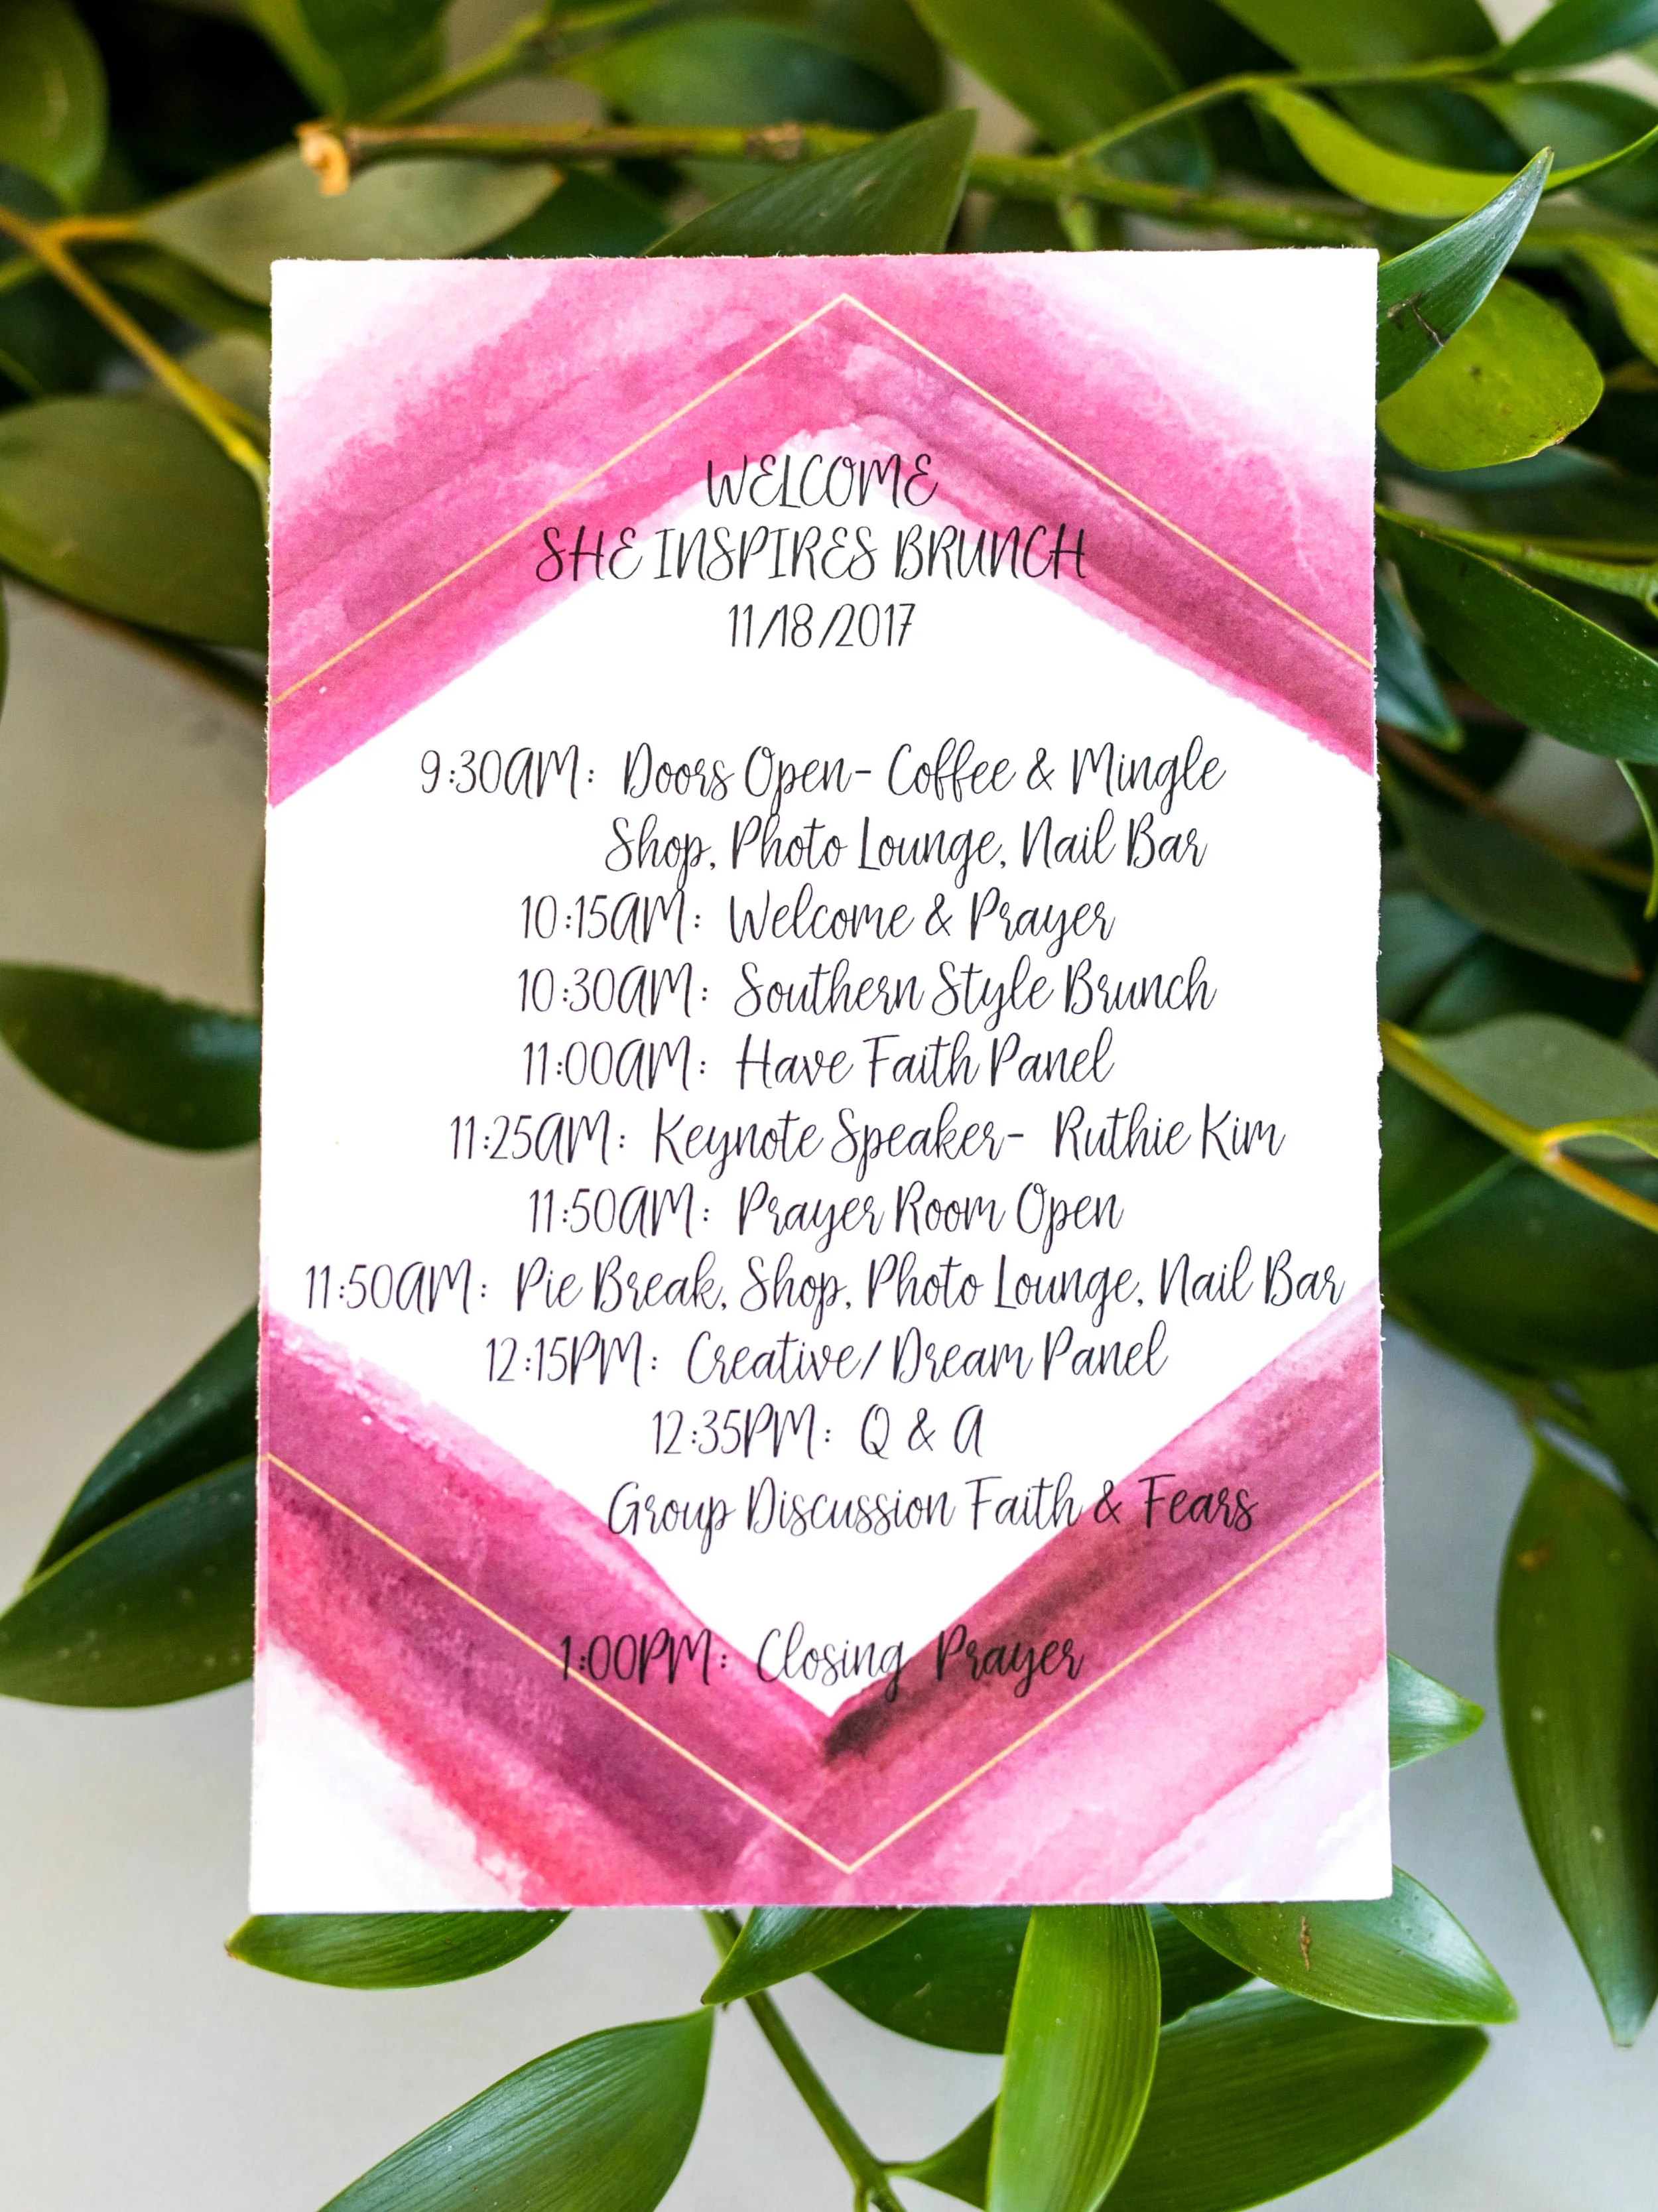 WELCOME
SHE INSPIRES BRUNCH
11/18/2017
9:30AM: Doors Open- Coffee & Mingle
Shop, Photo Lounge, Nail Bar
10:15AM: Welcome & Prayer
10:30AM: Southern Style Brunch
11:00AM: Have Faith Panel
11:25AM: Keynote Speaker- Ruthie Kim
11:50AM: Prayer Room Open
11:50AM: Pie Break, Shop, Photo Lounge, Nail Bar
12:15PM: Creative/ Dream Panel
12:35PM: Q & A
Group Discussion Faith & Fears
1:00PM: Closing Prayer